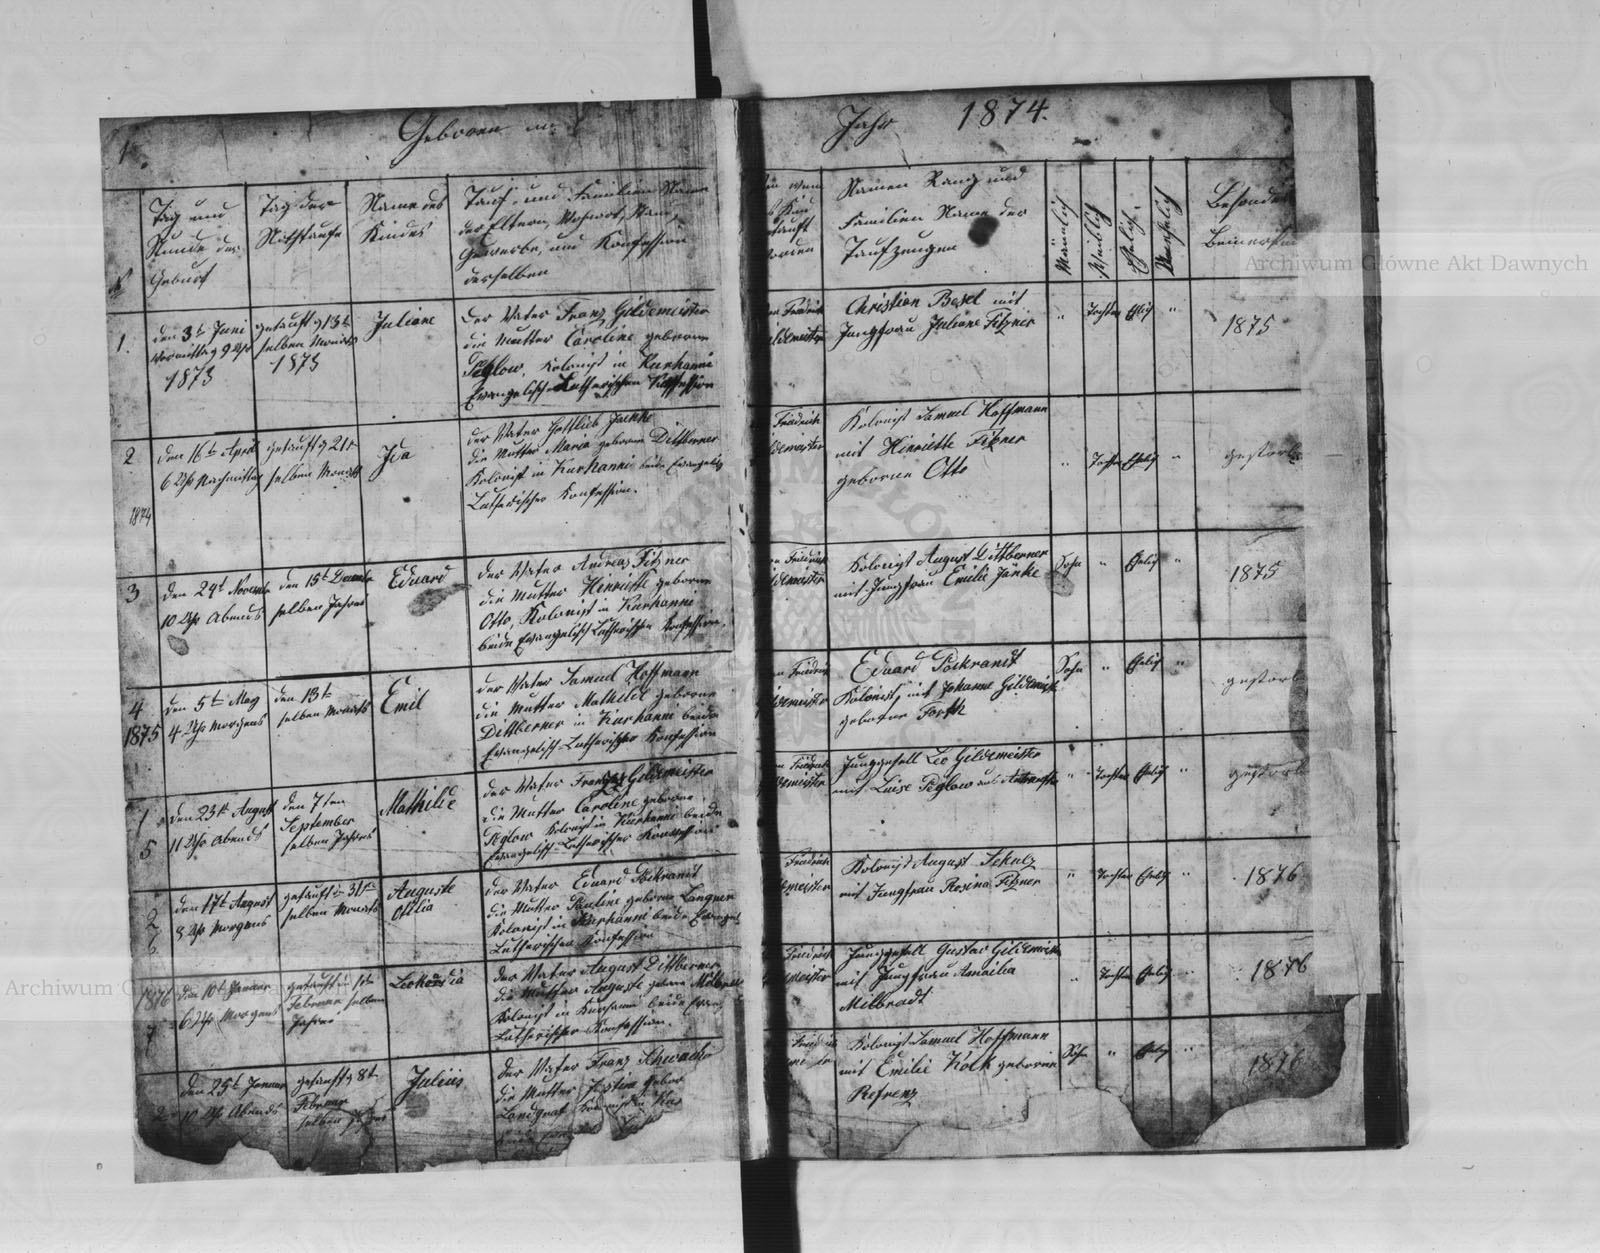 1.
Geboren im
Jahr 1874.
№
Tag und
Stunde der
Geburt
Tag der
Nothtaufe
Name des
Kindes
Tauf- und Familien Name
der Eltern, Wohnort, Stand,
Gewerbe, und Konfession
derselben
Namen Rang und
Familien Name der
Taufzeugen
Männlich
Weiblich
Ehelich
Unehelich
Besonde
Bemerku
1.
den 3t Juni
Vormittag 9 Uhr
1873
getauft d 13t
selben Monats
1873
Juliane
der Vater Franz Gildemeister
die Mutter Caroline geborene
Peglow, Kolonist in Kurhanni
Evangelisch Lutherischen Confession
Friedrich
ldemeister
Christian Besel mit
Jungfrau Juliane Fitzner
" Tochter Ehlich "
1875
2
1874
den 16t April
6 Uhr Nachmittag
getauft d 21t
selben Monats
Ida
der Vater Gottlieb Jaenke
die Mutter Maria geborene Dittberner
Kolonist in Kurhanni beide Evangelisch
Lutherischer Konfession.
Friedrich
ldemeister
Kolonist Samuel Hoffmann
mit Henriette Fitzner
geborene Otto
" Tochter Ehelich "
gestorb
3
den 29t November
10 Uhr Abends
den 15t Decembr
selben Jahres
Eduard
der Vater Andreas Fitzner
die Mutter Henriette geborene
Otto, Kolonist in Kurhanni
beide Evangelisch Lutherischen Confession.
Friedrich
ldemeister
Kolonist August Dittberner
mit Jungfrau Emilie Jänke
Sohn " Ehelich "
1875
4
1875
den 5t May
4 Uhr Morgens
den 13t
selben Monats
Emil
der Vater Samuel Hoffmann
die Mutter Mathilde geborene
Dittberner in Kurhanni beide
Evangelisch-Lutherischer Konfession
Friedrich
demeister
Eduard Pockrandt
Kolonist, mit Johanne Gildemeist
geborene Forth
Sohn " Ehelich "
gestorb
1
5
den 23t August
11 Uhr Abends
den 7ten
September
selben Jahres
Mathilde
der Vater Franz Gildemeister
die Mutter Caroline geborene
Peglow Kolonist in Kurhanni beide
Evangelisch-Lutherischer Konfession
Friedrich
demeister
Junggesell Leo Gildemeister
mit Luise Peglow aus
" Tochter Ehelich "
gestorb
2
6
den 17t August
8 Uhr Morgens
getauft d 31t
selben Monats
Auguste
Otilia
der Vater Eduard Pockrandt
die Mutter Pauline geborene Langner
Kolonist in Kurhanni beide Evangel
Lutherischer Konfession
Friedrich
demeister
Kolonist August Schulz
mit Jungfrau Rosina Fitzner
" Tochter Ehelich "
1876
1876
7
den 10t Januar
6 Uhr Morgens
getauft d 1t
Februar selben
Jahres
Leokordia
der Vater August Dittberner
die Mutter Auguste geborne Milbradt
Kolonist in Kurhanni beide Evang
Lutherischer Konfession.
Friedrich
meister
Junggesell Gustav Gildemeiste
mit Jungfrau Amailia
Milbradt
" Tochter Ehelich "
1876
2
den 25t Januar
10 Uhr Abends
getauft d 8t
Februar
selben Jahres
Julius
der Vater Franz Schwacke
die Mutter Justine gebor
Landgraf Kolonist in Kur
beide
Friedrich
Kolonist Samuel Hoffmann
mit Emilie Kolk geborene
Refrenz
Sohn " Ehelich "
1876
Archiwum Główne Akt Dawnych
Archiwum Główne Akt Dawnych